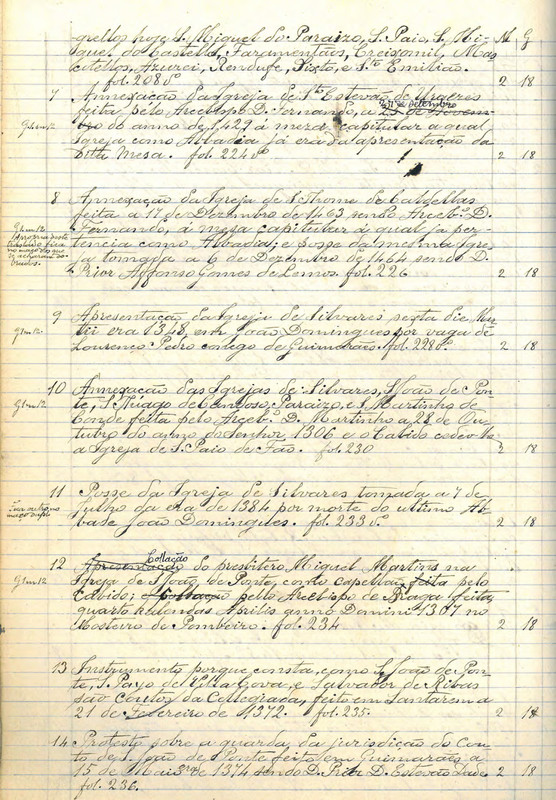 grellos hoje S. Miguel do Paraizo, S. Paio, S. Mi- N G
guel do Castello, Taramentãos, Creixomil, Mas
cotellos, Azurei, Rendufe, Pixto, e Sta Emilião.
fol. 208 vº 2 18
7 Annexação da Igreja de Sto Estevão de Urgezes
feita pelo Arcebispo D. Fernando, a 29 de Novem- 21 de Dezembro
bro do anno de 1429 á meza capitular a qual
Igreja como Abbadia já era da apresentação da
dita Mesa. fol. 224 vº 2 18
G1 m 12
8 Annexação da Igreja de S. Thome de Caldellas
feita a 17 de Dezembro de 1463 sendo Arceb. D.
Fernando, á mesa capitular á qual ja per-
tencia como Abbadia; e posse da mesma Igre-
ja tomada a 6 de Dezembro de 1464 sendo D.
Prior Affonso Gomes de Lemos. fol. 226 2 18
G1 m 12
9 Apresentação da Igreja de Silvares sexta die Mar
tii era 1348 em João Domingues por vaga de
Lourenço Pedro conego de Guimarães. fol. 228 vº 2 18
G1 m 12
10 Annexação das Igrejas de Silvares, S. João de Pon-
te, S. Thiago de Candoso, Paraizo, e S. Martinho de
Conde feita pelo Arcebº D. Martinho a 28 de Ou-
tubro do anno do Senhor 1306 e o Cabido cedeu-lhe
a Igreja de S. Paio de Fão. fol. 230 2 18
G1 m 12
11 Posse da Igreja de Silvares tomada a 7 de
Julho da era de 1384 por morte do ultimo Ab-
bade João Domingues. fol. 233 vº 2 18
12 Apresentação Collação do presbitero Miguel Martins na
Igreja de S. João de Ponte, como capellão, feita pelo
Cabido; Collação pello Arcebispo de Braga feita
quarto kalendas Aprilis anno Domini 1307 no
Mosteiro de Pombeiro. fol. 234 2 18
G1 m 12
13 Instrumento porque consta, como S. João de Pon-
te, S. Payo de Villa Cova, e Salvador de Ribas
são Coutos da Collegiada, feito em Santarem a
21 de Fevereiro de 1372. fol. 235. 2 18
14 Protesto sobre a guarda da jurisdicção do Cou-
to de S. João de Ponte feito em Guimarães a
15 de Maio era de 1374 sendo D. Prior D. Estevão Dade
fol. 236. 2 18